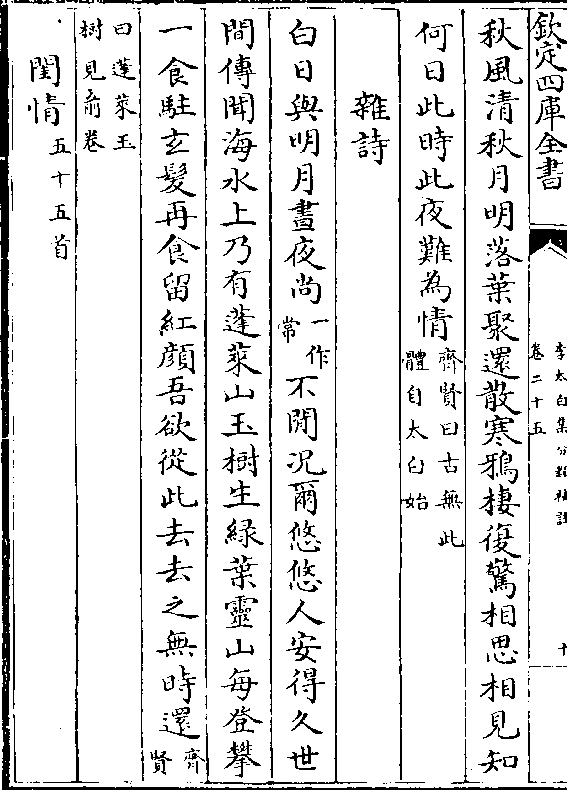 欽定四庫全書
李太白集分類補註
卷二十五
十
秋風清秋月明落葉聚還散寒鴉棲復驚相思相見知
何日此時此夜難為情齊賢曰古無此
體自太白始
雜詩
白日與明月晝夜尚一作
常不閒况爾悠悠人安得久世
間傳聞海水上乃有蓬萊山玉樹生綠葉靈山每登攀
一食駐玄髮再食留紅顔吾欲從此去去之無時還齊
賢
曰蓬萊玉
樹見前卷
閨情五十五首